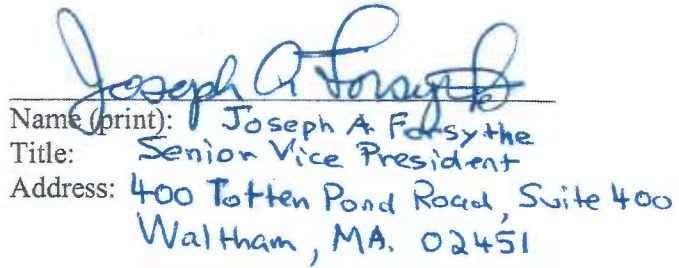 Joseph A Forsythe
Name (print): Joseph A Forsythe
Title: Senior Vice President
Address: 400 Totten Pond Road, Suite 400
Waltham, MA. 02451